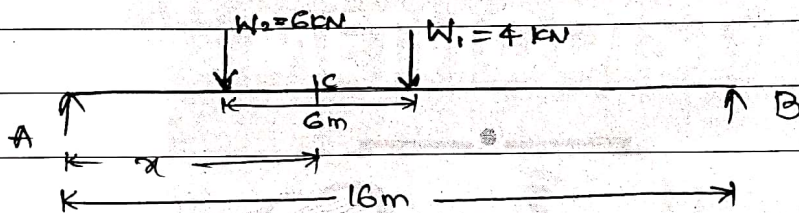 W₂=6KN W₁=4 KN
C
6m
A B
x
16m